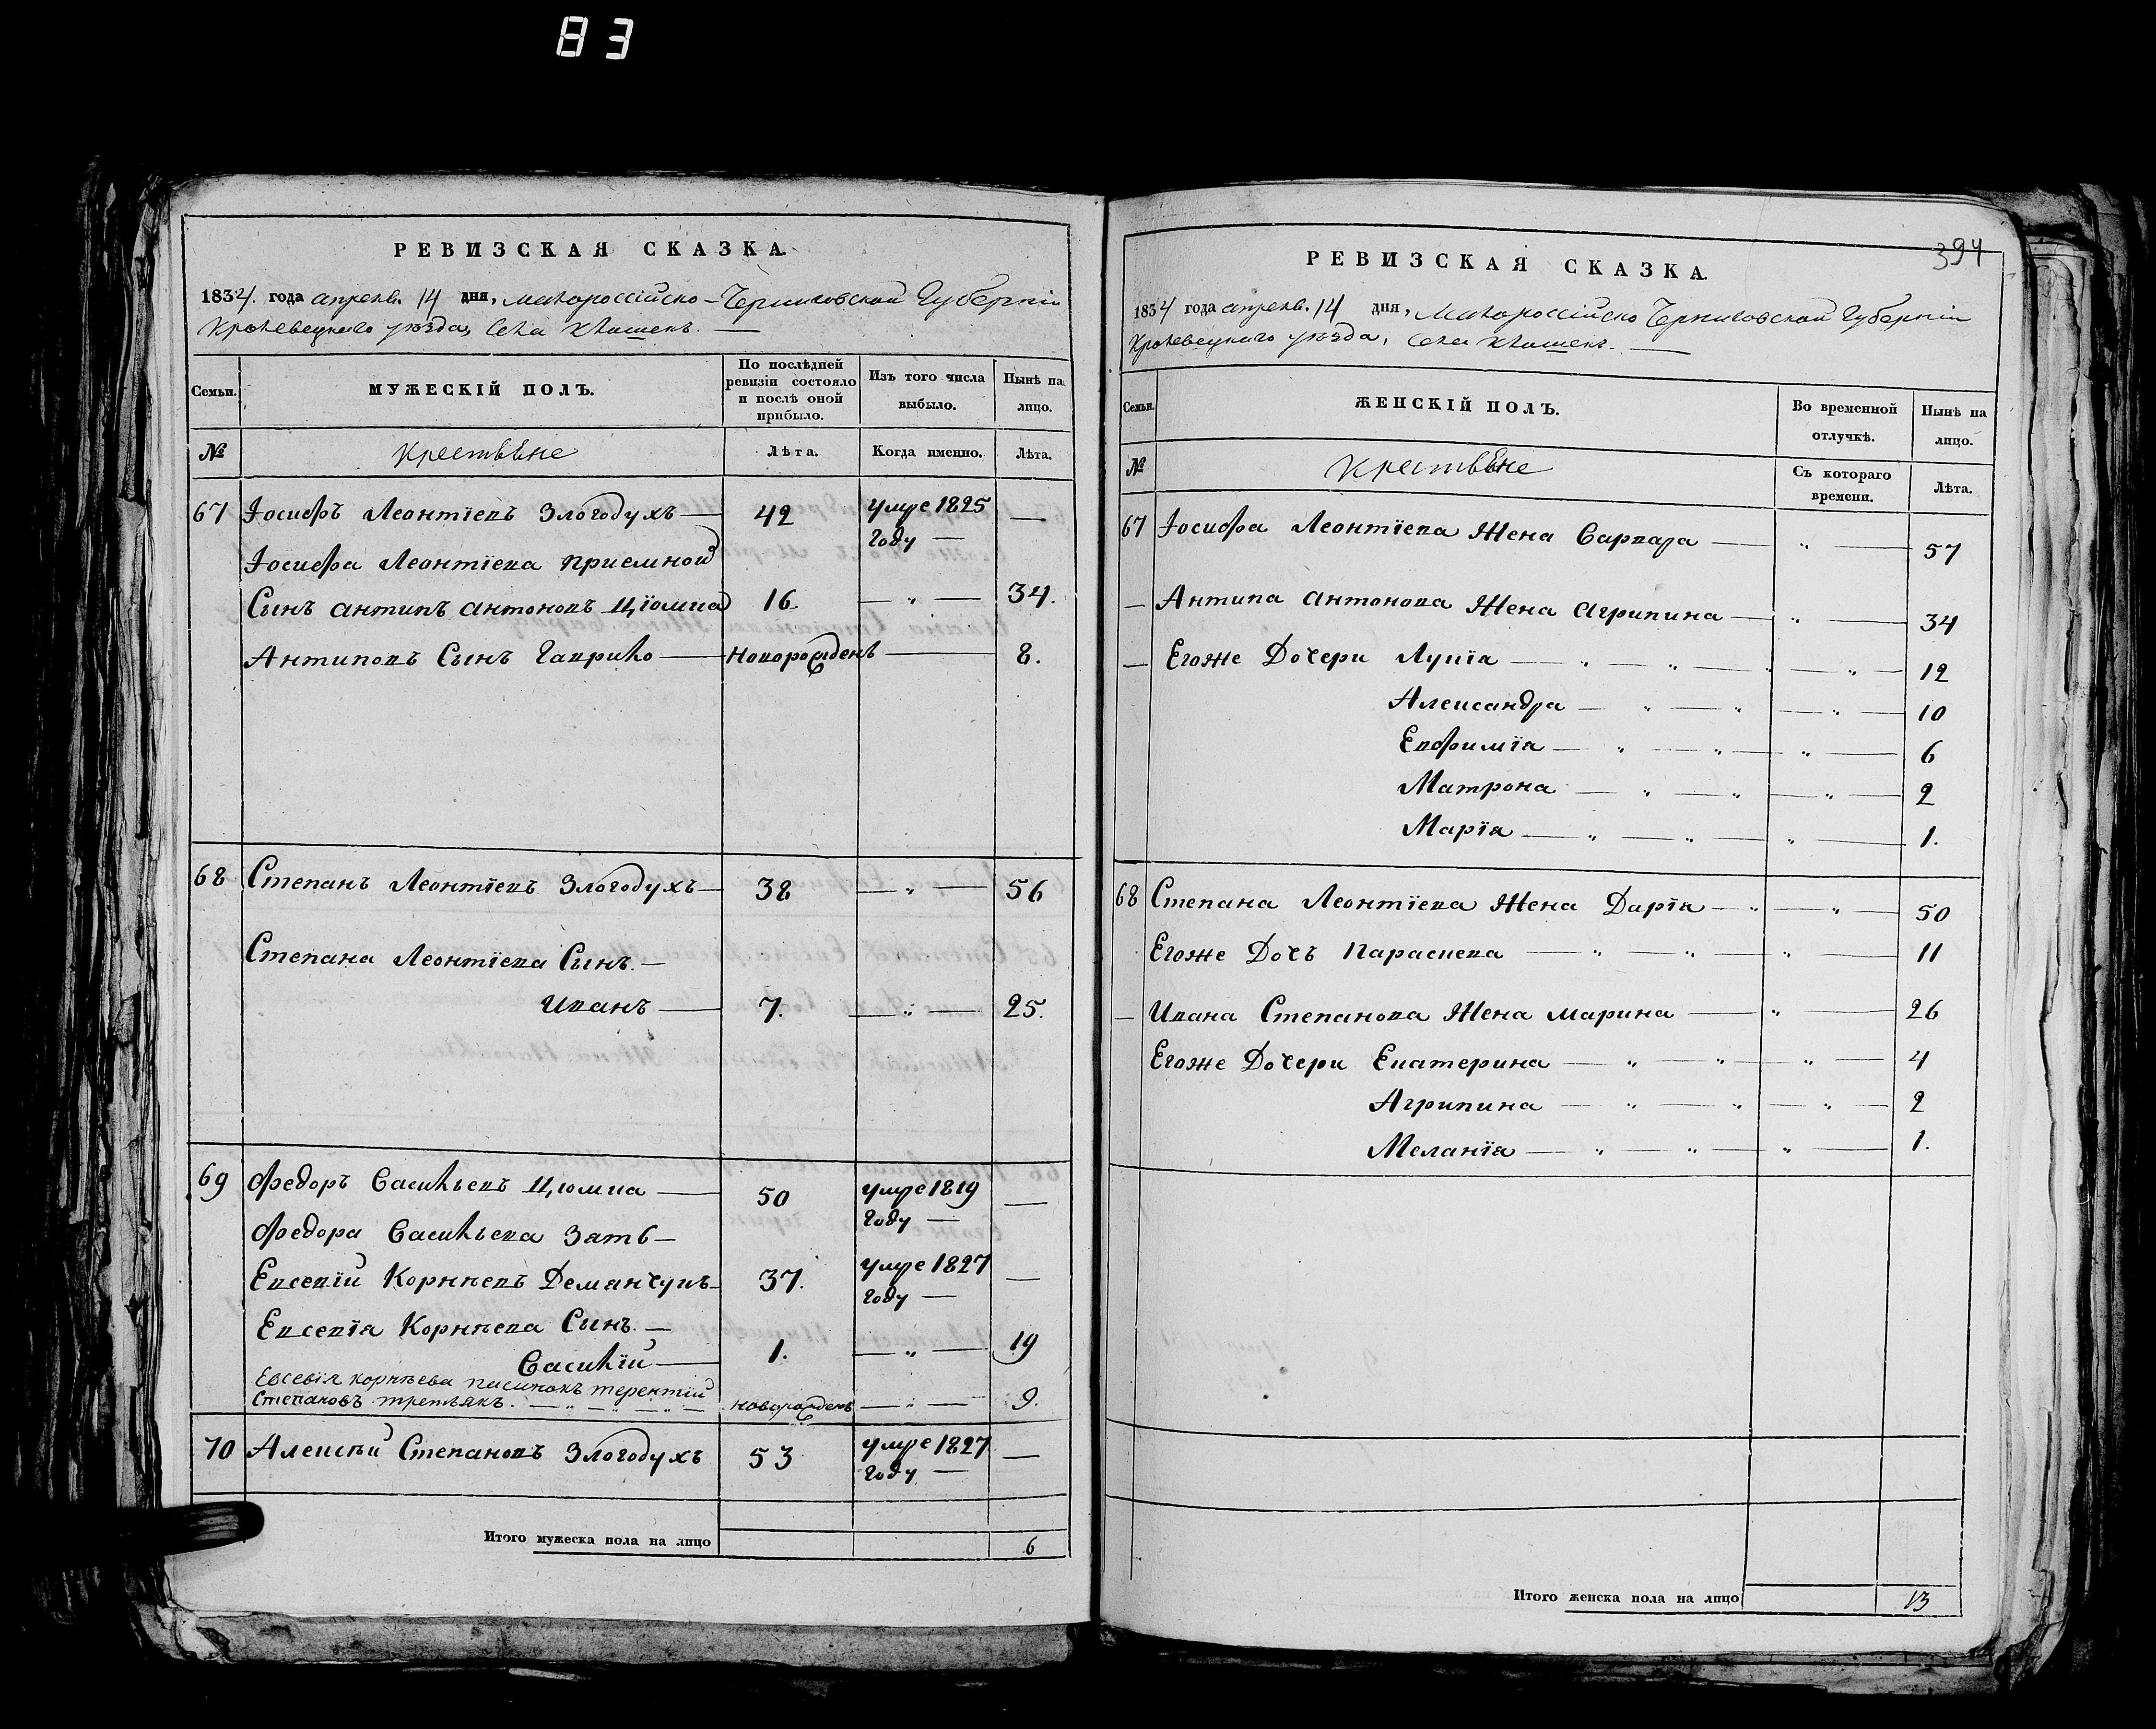 83
РЕВИЗСКАЯ СКАЗКА.
1834. года апреля. 14 дня, малороссійско-Черниговской Губерніи
Кролевецкого уѣзда, Села Клишекъ.
Семьи. МУЖЕСКІЙ ПОЛЪ. По послѣдней ревизіи состояло и послѣ оной прибыло. Изъ того числа выбыло. Нынѣ на лицо.
№ Крестьяне Лѣта. Когда именно. Лѣта.
67 Іосифъ Леонтіевъ Злогодухъ — 42 умре 1825 Году — —
Іосифа Леонтіева приемной
Сынъ антипъ антоновъ Цюмка 16. — „ — 34.
Антиповъ Сынъ Гаврило — новорожденъ — 8.
68 Степанъ Леонтіевъ Злогодухъ — 38 — „ — 56
Степана Леонтіева Сынъ. —
Иванъ — 7. — „ — 25.
69 Федоръ Васильевъ Цюмка — 50 умре 1819 Году — —
Федора Васильева Зять —
Евсевій Корнѣевъ Деманчукъ — 37. умре 1827 Году — —
Евсевія Корнѣева Сынъ. —
Василій — 1. — „ — 19
Евсевія корнѣева пасинокъ терентій
Степановъ третьякъ. — „ — „ — „ — новорожденъ — „ — 9.
70 Алексѣй Степановъ Злогодухъ 53 умре 1827 Году — —
Итого мужеска пола на лицо 6
394
РЕВИЗСКАЯ СКАЗКА.
1834 года апреля. 14 дня, Малороссійско Черниговской Губерніи
Кролевецкаго уѣзда, Села Клишекъ. —
Семьи. ЖЕНСКІЙ ПОЛЪ. Во временной отлучкѣ. Нынѣ на лицо.
№ Крестьяне Съ котораго времени. Лѣта.
67 Іосифа Леонтіева Жена Варвара — „ — 57
— Антипа антонова Жена Агрипина — „ — 34
— Егоже Дочери Лукіа — „ — „ — „ — „ — 12
Александра — „ — „ — „ — 10
Евфимія — „ — „ — „ — 6
Матрона — „ — „ — „ — 2
Марія — „ — „ — „ — 1.
68 Степана Леонтіева Жена Дарія — „ — „ — 50
Егоже Дочь Параскева — „ — „ — „ — 11
— Ивана Степанова Жена марина — „ — 26
Егоже Дочери Екатерина — „ — „ — „ — 4
Агрипина — „ — „ — „ — 2
Меланія — „ — „ — „ — 1.
Итого женска пола на лицо 13